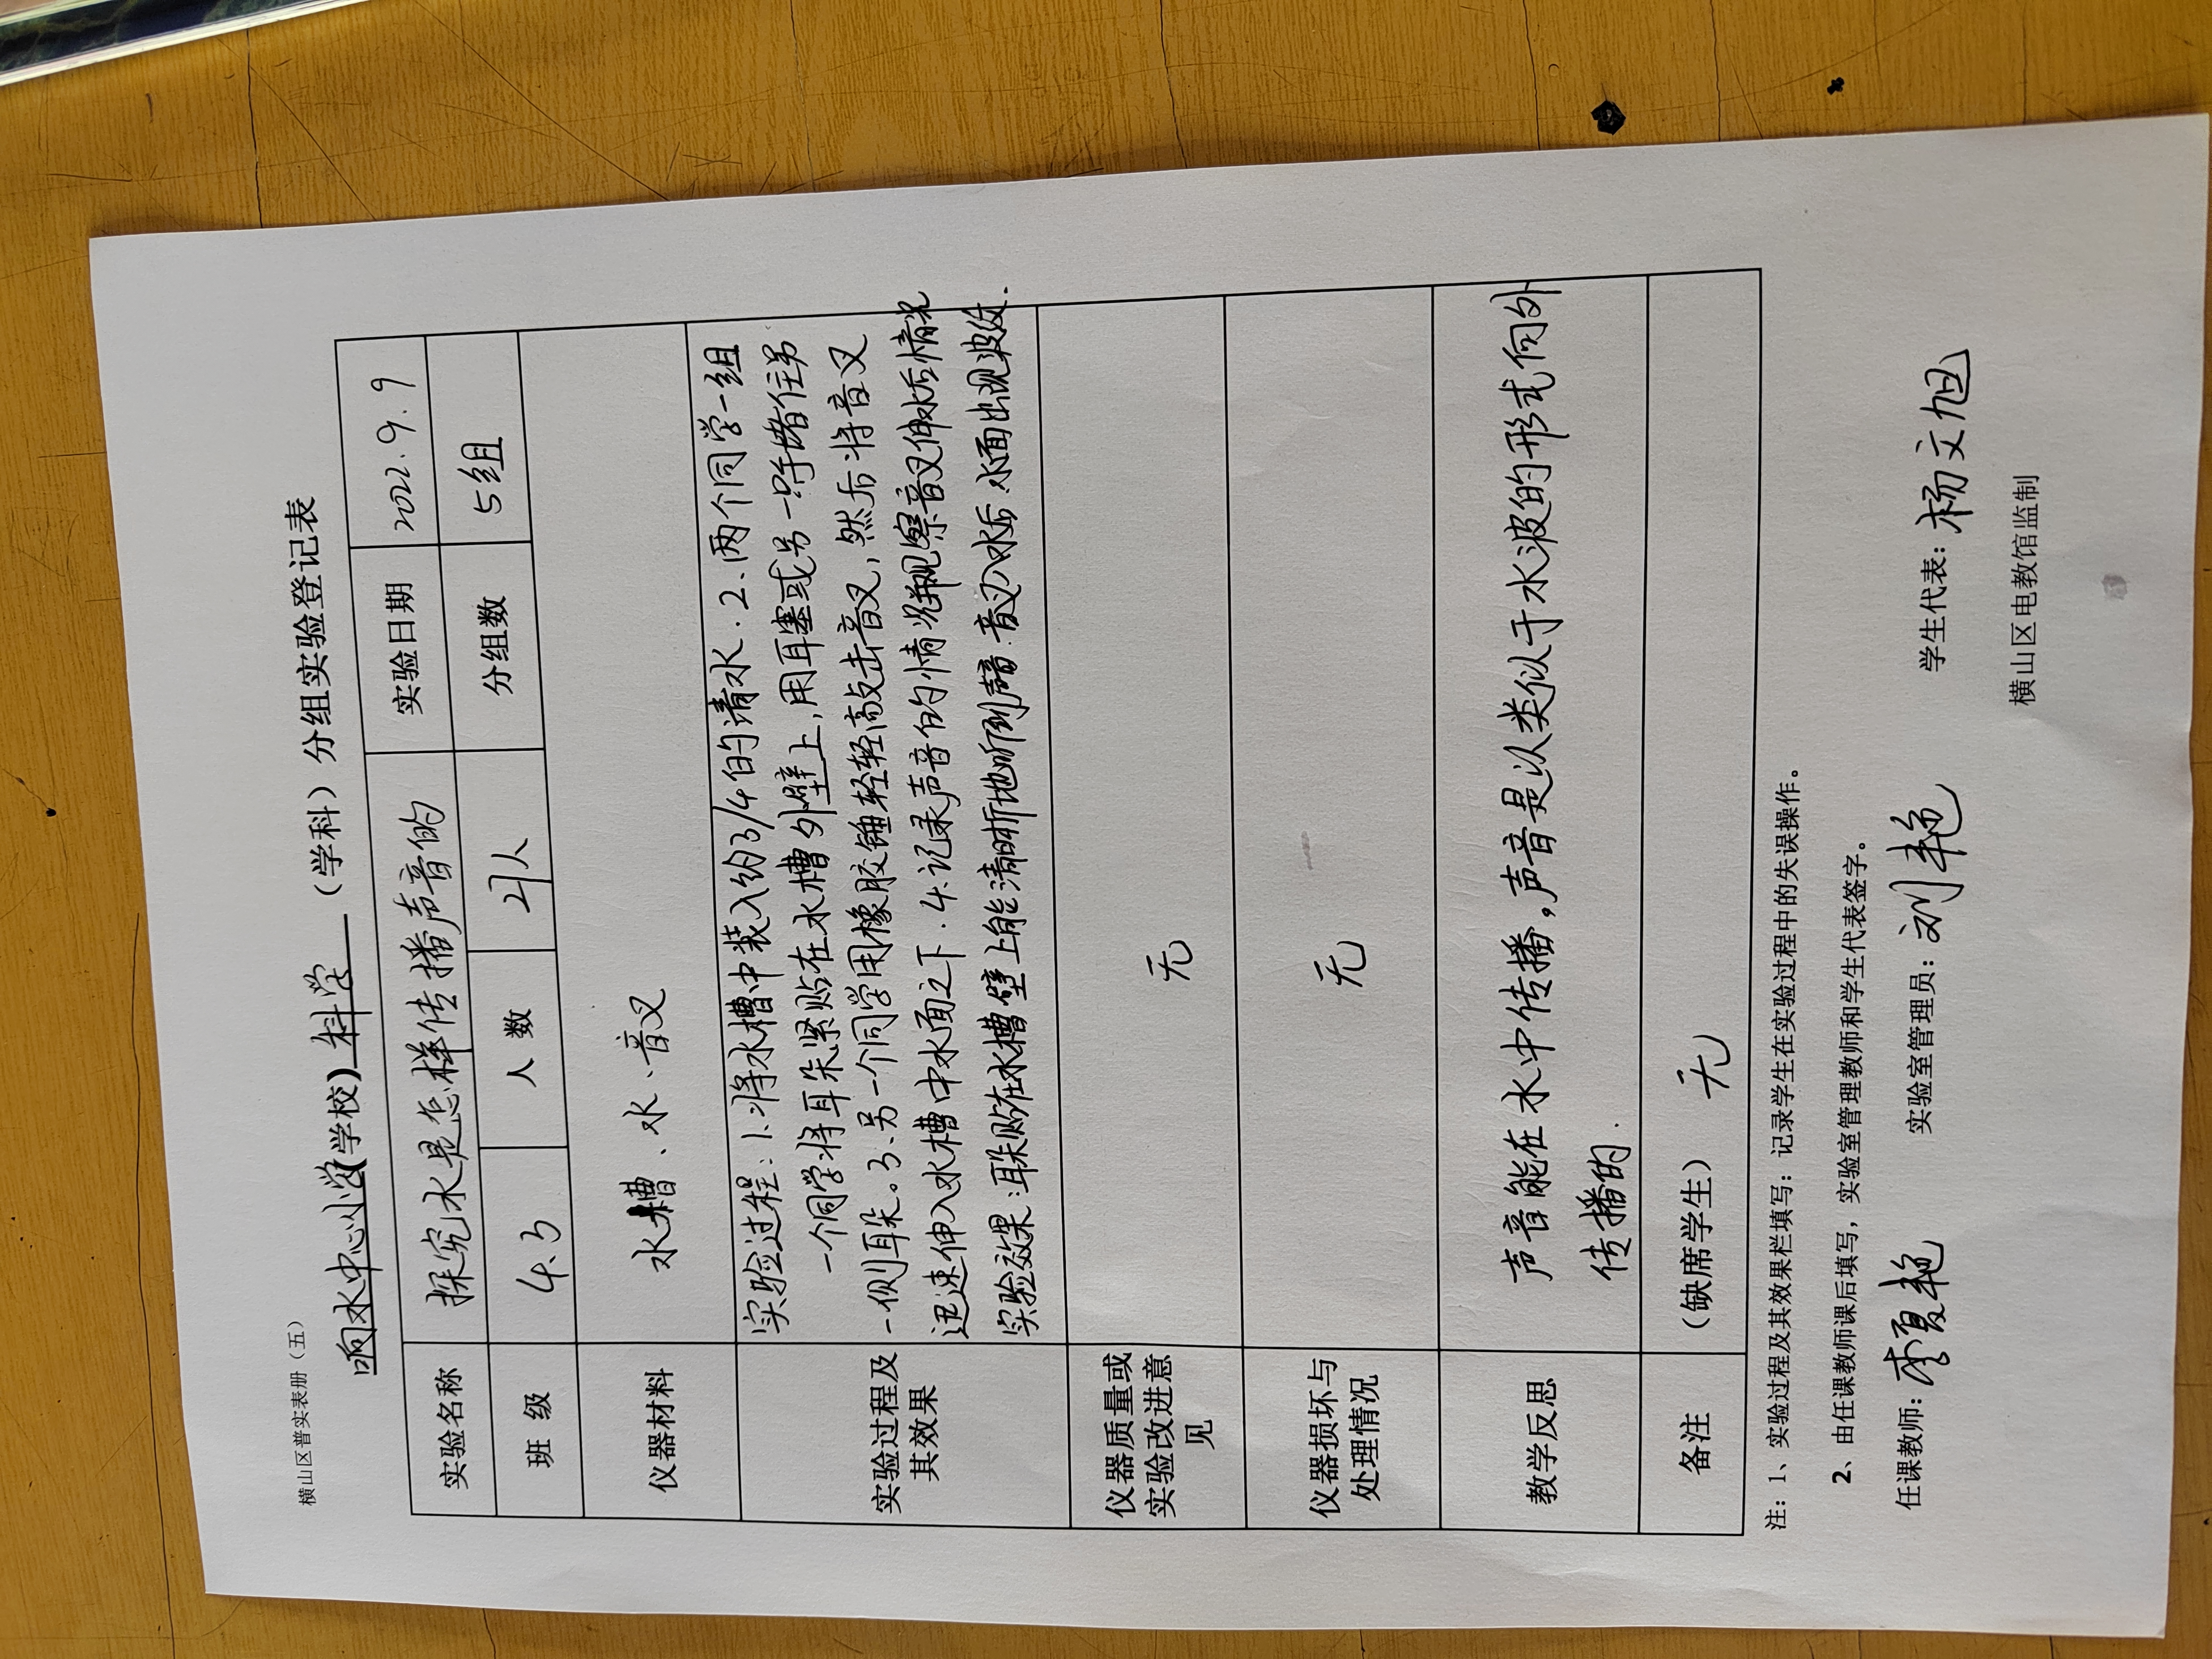 横山区普实表册（五）
响水中心小学(学校) 科学 （学科）分组实验登记表
实验名称 探究水是怎样传播声音的 实验日期 2022.9.9
班 级 4.3 人 数 21人 分组数 5组
仪器材料 水槽、水、音叉
实验过程及
其效果
实验过程：1.将水槽中装入约3/4的清水．2.两个同学一组
一个同学将耳朵紧贴在水槽外壁上,用耳塞或另一只手堵住另
一侧耳朵。3.另一个同学用橡胶锤轻轻敲击音叉，然后将音叉
迅速伸入水槽中水面之下．4.记录声音的情况并观察音叉伸水后情况
实验效果：耳朵贴在水槽壁上能清晰地听到声音.音叉入水后.水面出现波纹．
仪器质量或
实验改进意
见
无
仪器损坏与
处理情况
无
教学反思
声音能在水中传播,声音是以类似于水波的形式向外
传播的．
备注 （缺席学生） 无
注：1、实验过程及其效果栏填写：记录学生在实验过程中的失误操作。
2、由任课教师课后填写，实验室管理教师和学生代表签字。
任课教师：李夏艳 实验室管理员：刘艳 学生代表：杨文旭
横山区电教馆监制